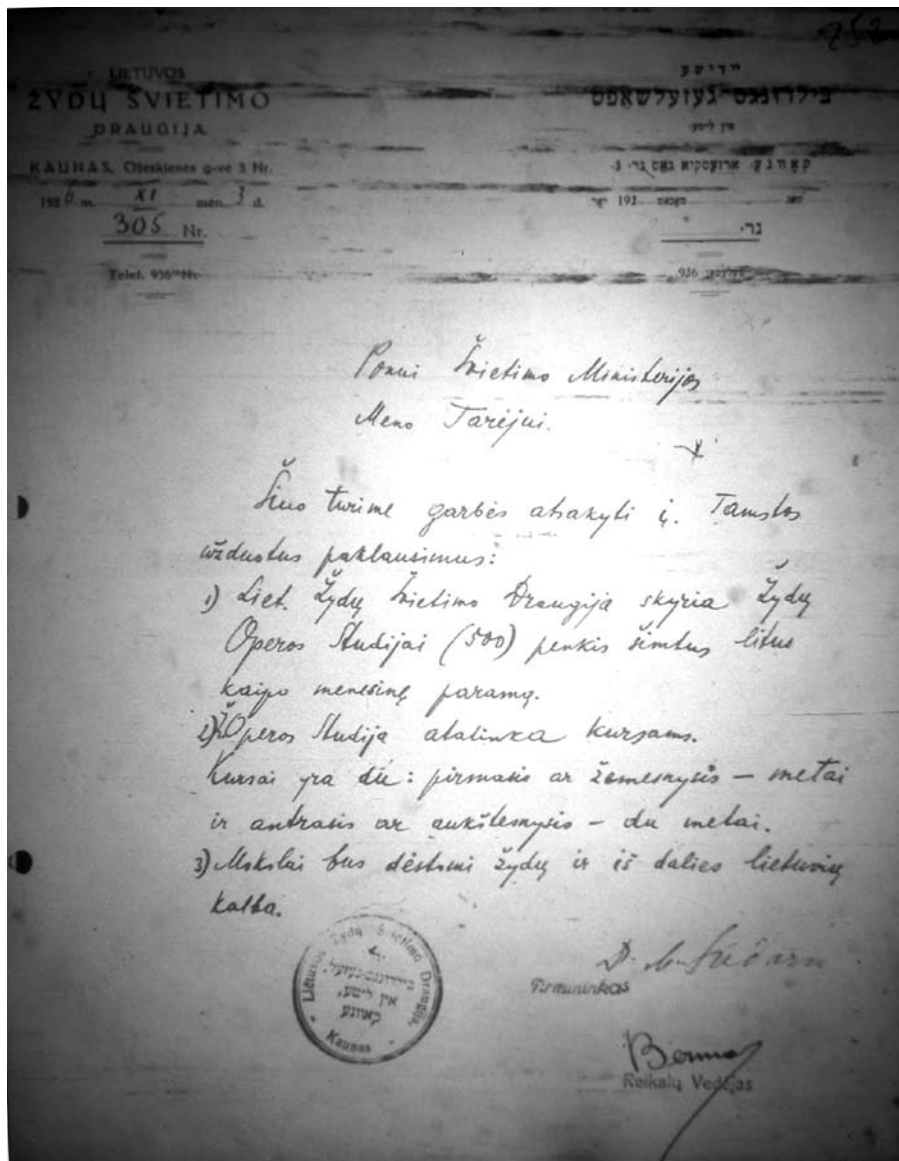 252
LIETUVOS
ŽYDŲ ŠVIETIMO
DRAUGIJA
KAUNAS, Ožeskienės g-vė 3 Nr.
1926 m. XI mėn. 3 d.
305 Nr.
Telef. 936 Nr.
יידישע
בילדונגס-געזעלשאפט
אין ליטע
קאוונע, גאס נר. 3
192 יאר
נר.
936
Ponui Švietimo Ministerijos
Meno Tarėjui.
Šiuo turime garbės atsakyti į. Tamstos
užduotus paklausimus:
1) Liet. Žydų Švietimo Draugija skyria Žydų
Operos Studijai (500) penkis šimtus litus
kaipo menesinę paramą.
2) Ž Operos Studija atatinka kursams.
Kursai yra du: pirmasis ar žemesnysis – metai
ir antrasis ar aukštesnysis – du metai.
3) Mokslai bus dėstomi žydų ir iš dalies lietuvių
kalba.
Lietuvos Žydų Švietimo Draugija,
אין ליטע,
קאוונע
Kaunas
D.
Pirmininkas
Reikalų Vedėjas